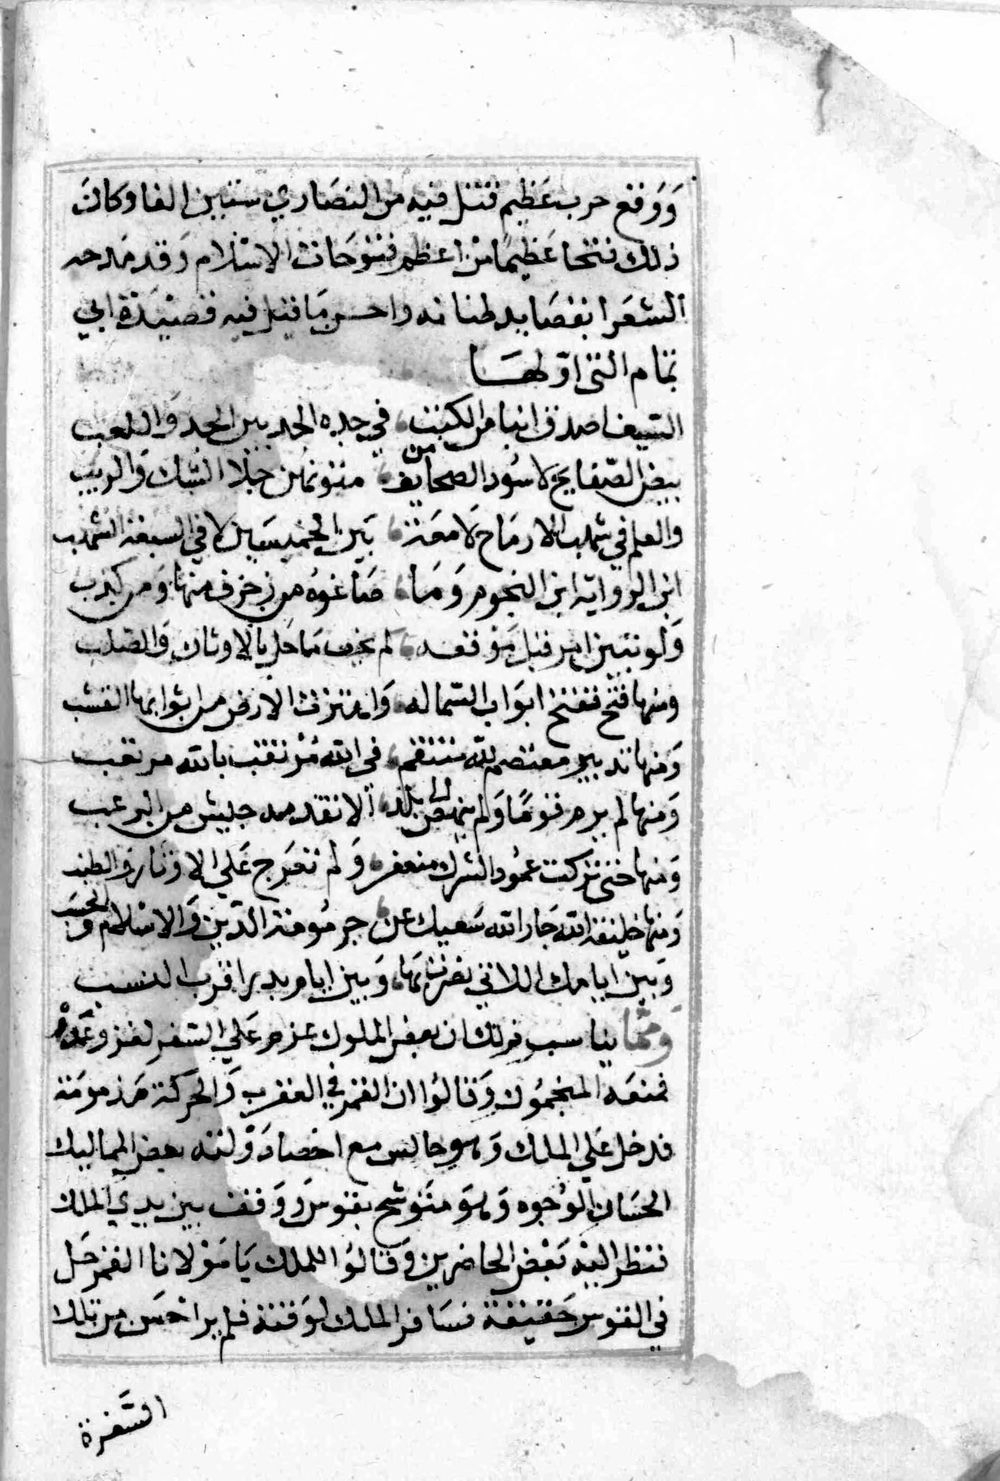 وَوَقع حرب عَظيم قتل فيه من النصَاري ستين الفا وكانَ
ذلك فتحا عَظيمًا من اعظم فتوحات الاسْلام وَقد مَدحه
الشعَرا بقصَايد طنانه واحسن مَا قيل فيه قصيْدة ابي
تمام التى اوّلهَا
السّيف اصدق انبا من الكتب، في حده الحد بين الجد وَاللعب
بيض الصّفايح لا سُود الصحائف، من متونهن جلا الشك وَالريب
والعلم في شهب الارمَاح لامعَة، بَين الخميسَين لا في السبعة الشهب
اين الروايه اين النجوم وَمَا، صَاغوه من زخرف منها وَمن كذب
وَلو تبين امر قبل مَوقعه، لم يخف مَا حل بالاوثان وَالصّلب
ومنها فتح تفتح ابوَاب السّما له، وَا تبرز الارض من اثوابها القشب
وَمنها تدبير معتصم بالله منتقم، فى الله مُرتقب بالله مرتغب
وَمنها لم يرم قومًا وَلم ينهض الى بلد، الا تقدمه جيش من الرعب
وَمنها حتى تركت عمُود الشرك منعفر، وَلم تعَرج عَلي الاوتار وَالطنب
وَمنها خليفة الله جَازا الله سَعيك عن، جرثومة الدّين وَالاسْلام وَالحسَب
وَبين ايامك اللاتي نصرت بهَا، وَبين ايام بدر اقرب النسب
وَممَّا يناسب ذلك ان بعض الملوك عزم عَلي السّفر لغزو عَدوّه
فمنعَه المنجمُون وَقالوُا ان القمَر في العقرب وَالحَركة مَذمومَة
فدخل عَلي الملك وَهو جالس مع اخصاء دَوْلته بعض المماليك
الحسَان الوُجوه وَهوَ متَوشح بقوسٍ وَوَقف بين يدي الملك
فنظر اليْه بَعْض الحاضرين وَقالوُا للملك يَا مَوْلانا القمر حَل
في القوس حَقيقة فسَافر الملك لوَقته فلم ير احْسَن من تلك
السَّفرة